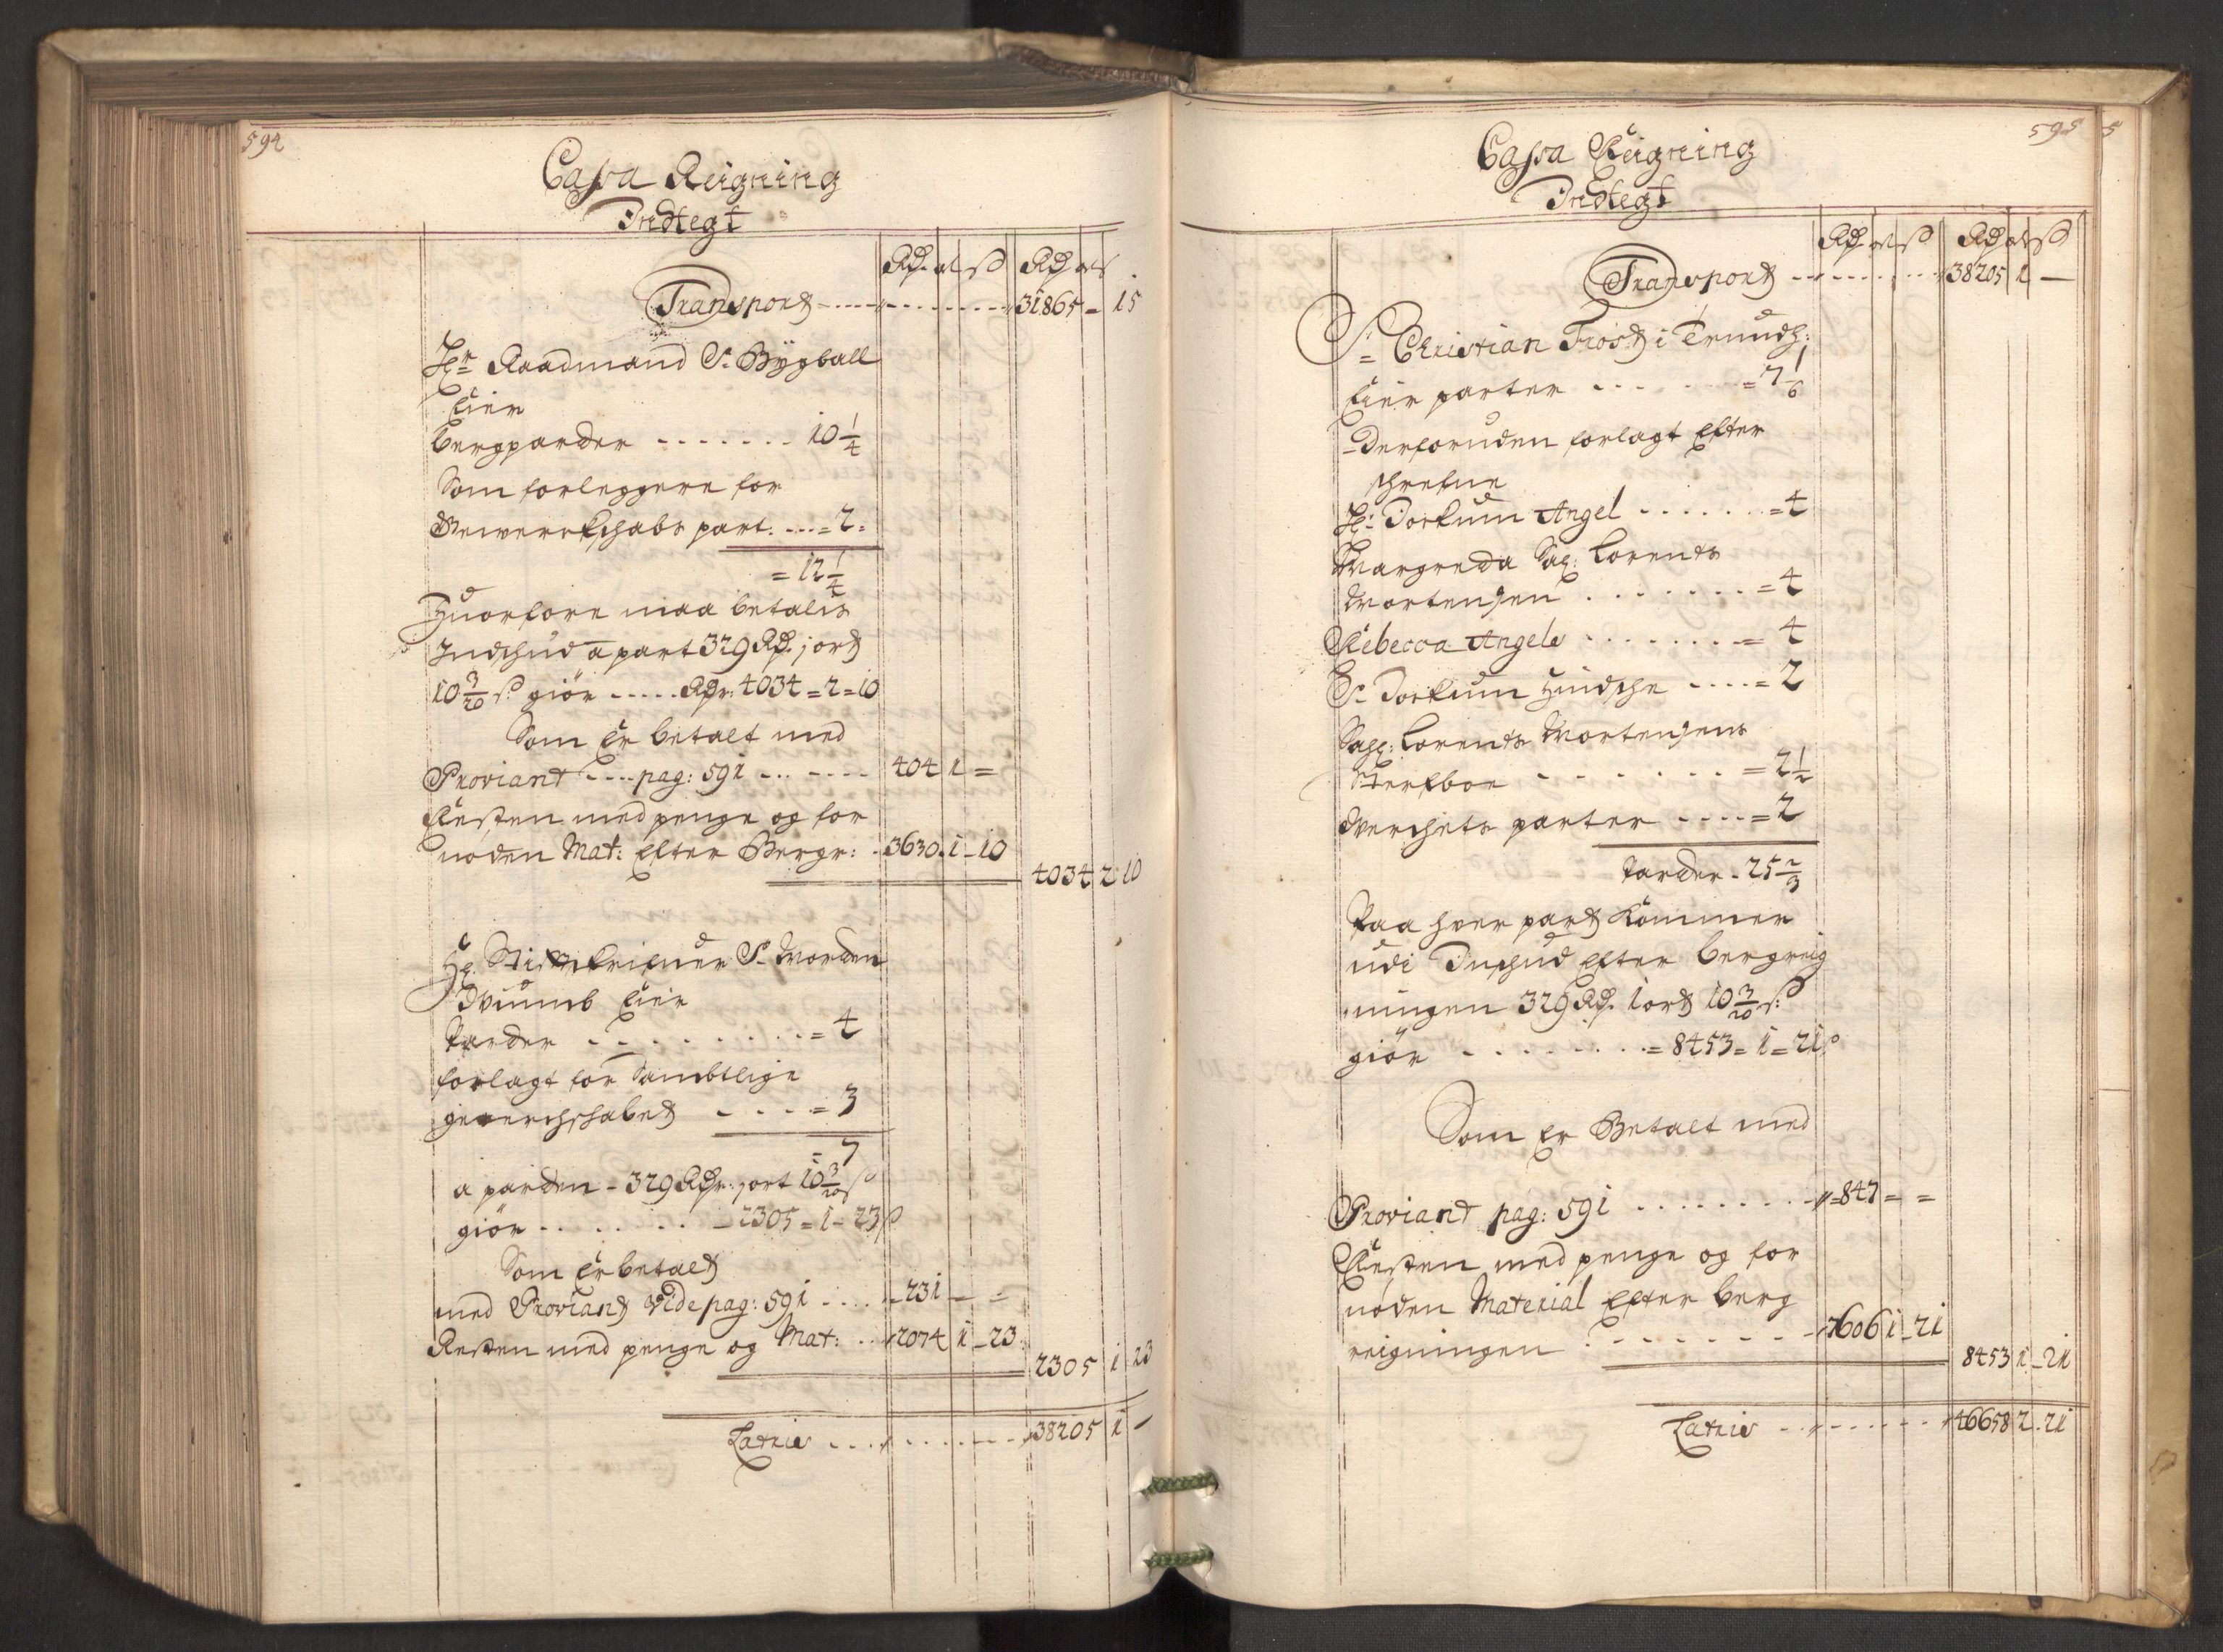 594
Cassa Reigning
Indtegt
Rdr. ort ß Rdr ort
Transport - - - - - - - - - 31865 = 15
Hr. Raadmand S. Bygball
Eier
bergparder - - - - - - - 10 1/4
Som forleggere for
Gewerckschabs part: - - - = 2 =
= 12 1/4
Huorfore maa betalis
Indschud a part 329 Rdr. 1 ort
10 3/20 ß giör - - - - - Rdr. 4034 = 2 = 10
Som Er betalt med
Proviant - - - - pag: 591 - - - - - - - 404 1 =
Resten med penge og for
nøden Mat: Efter Bergr: - 3630 - 1 - 10
4034 2 10
Hr. S.
Eier
Parder - - - - - - - - - = 4
forlagt for Sambtlige
gewerchschabet - - - - = 3
= 7
a parden - 329 Rdr. 1 ort 10 3/20 ß
giör - - - - - - - 2305 = 1 = 23 ß
Som Er betalt
med Proviant Vide pag: 591 - - - - - 231 - =
Resten med penge og Mat: - - 2074 1 - 23
2305 1 23
Latris - - - - - - - - - 38205 1 -
595 5
Cassa Reigning
Indtegt
Rdr. ort ß Rdr ort ß
Transport - - - - - - - - 38205 1 -
S. Christian Frost i Trundh:
Eier parter - - - - - - - = 7 1/6
Derforuden forlagt Efter
schrefne
H: Dorkum Angel - - - - - - = 4
Margreda Sal: Lorents
Mortensen - - - - - - - = 4
Rebecca Angels - - - - - - - - = 4
S. Dorkum Hindsche - - - - = 2
Sahl: Lorents Mortensens
Sterfboe - - - - - - - = 2 1/2
Werchets parter - - - - = 2
Parder - 25 2/3
Paa hver part Kommer
udi Inschud Efter bergreig
ningen 329 Rdr. 1 ort 10 3/20 ß
giör - - - - - - - - = 8453 = 1 = 21 ß
Som Er Betalt med
Proviant pag: 591 - - - - - - - - - - = 847 = =
Resten med penge og for
nøden Material Efter berg
reigningen - - - - - - - - - 7606 1 - 21
8453 1 - 21
Latris - - - - - - - - 46658 2 - 21